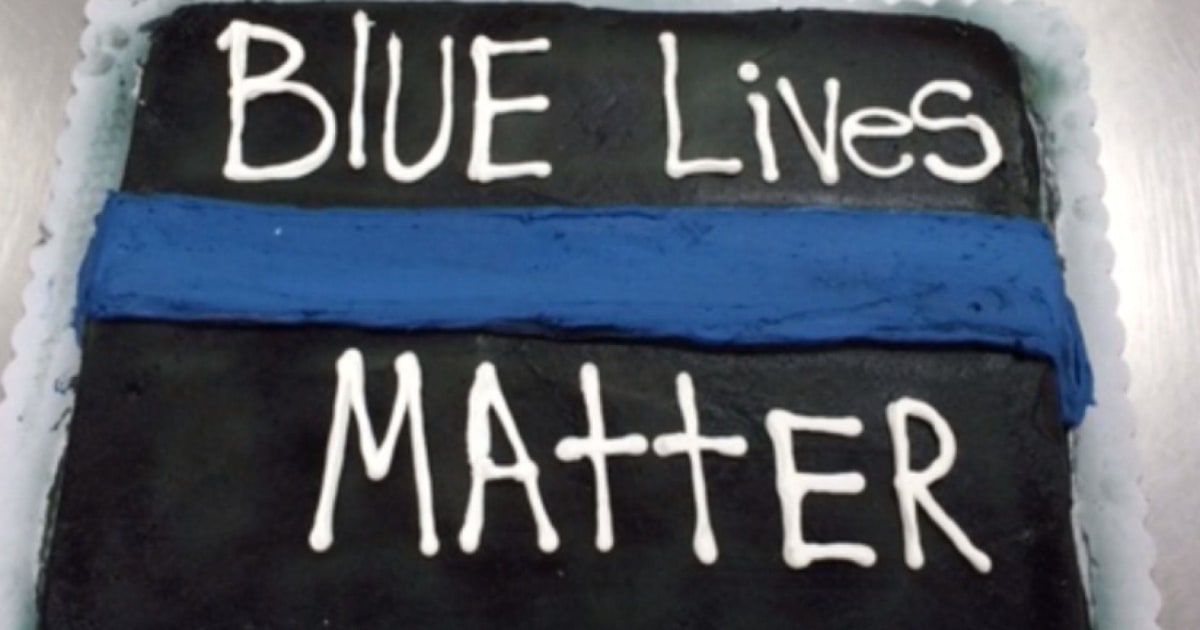 BlUE Lives
MAttER